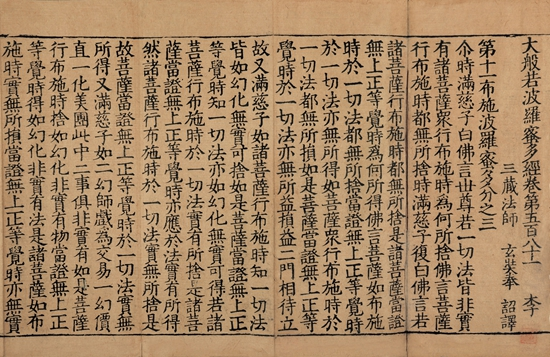 大般若波羅蜜多經卷第五百八十一 李
三藏法師 玄奘奉 詔譯
第十一布施波羅蜜多分之三
尒時滿慈子白佛言世尊若一切法皆非實
有諸菩薩衆行布施時爲何所捨佛言菩薩
行布施時都無所捨時滿慈子復白佛言若
諸菩薩行布施時都無所捨是諸菩薩當證
無上正等覺時爲何所得佛言菩薩如布施
時於一切法都無所捨當證無上正等覺時
於一切法亦無所得又滿慈子如布施時於
一切法都無所損如是菩薩當證無上正等
覺時於一切法亦無所益損益二門相待立
故又滿慈子如諸菩薩行布施時於一切法
皆如幻化無實可捨如是菩薩當證無上正
等覺時知一切法亦如幻化無實可得若諸
菩薩行布施時於一切法實有所捨是諸菩
薩當證無上正等覺時亦應於法實有所得
然諸菩薩行布施時於一切法實無所捨是
故菩薩當證無上正等覺時於一切法實無
所得又滿慈子如二幻師戲爲交易一幻價
直一化美團此中二事俱非實有如是菩薩
行布施時捨如幻化非實有物當證無上正
等覺時得如幻化非實有法是諸菩薩如布
施時實無所損當證無上正等覺時亦無實